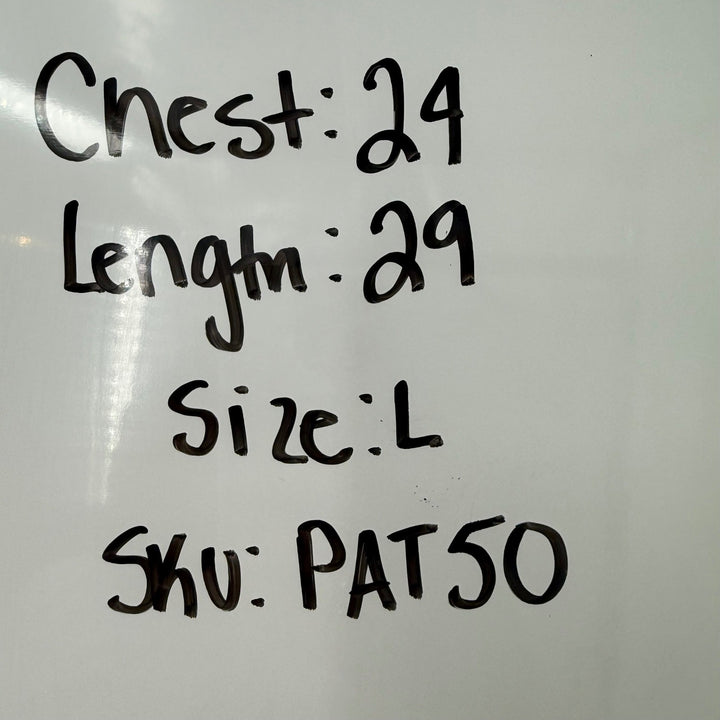 Chest: 24
Length: 29
Size: L
SKU: PAT50